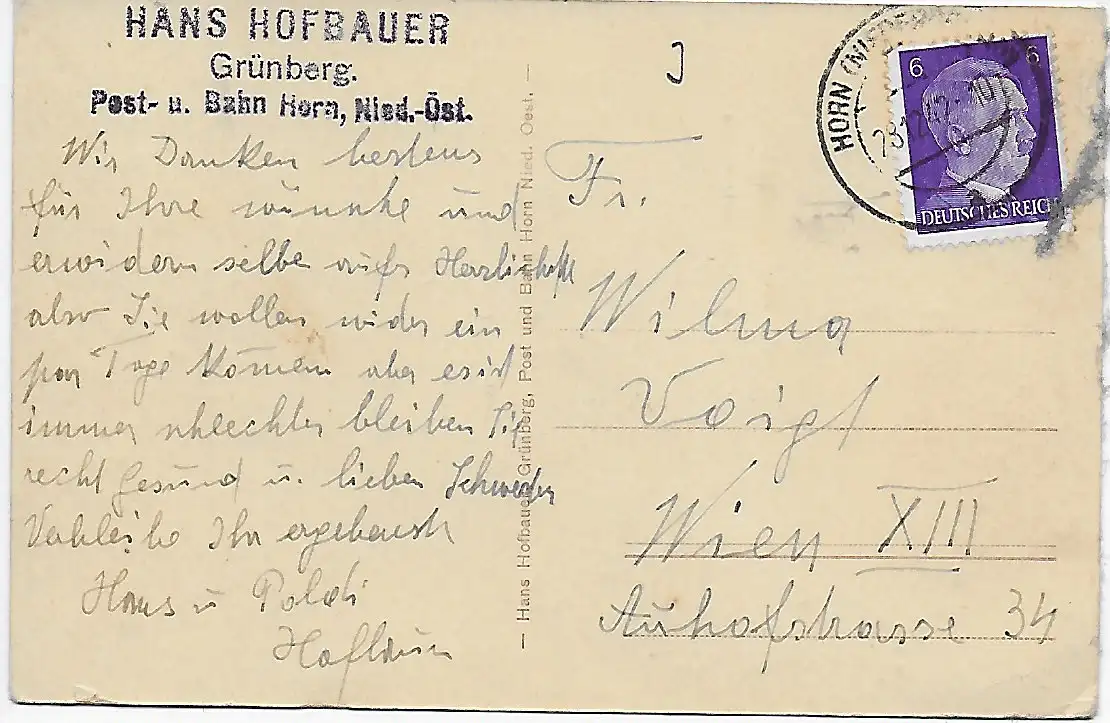 HANS HOFBAUER
Grünberg.
Post- u. Bahn Horn, Nied.-Öst.
Wir Danken bestens
für Ihre wünche und
erwidern selbe aufs Herzlichste
also Sie wollen wider ein
par Tage kommen aber es ist
immer schlechter bleiben Sie
recht gesund u. lieben Schwester
Ihr ergebenst
Hans u Poldi
— Hans Hofbauer, Grünberg, Post und Bahn Horn Nied. Oest. —
HORN (NIEDER
28.12.42.-10
6 6
DEUTSCHES REICH
Fr.
Wilma
Voigt
Wien XIII
Auhofstrasse 34